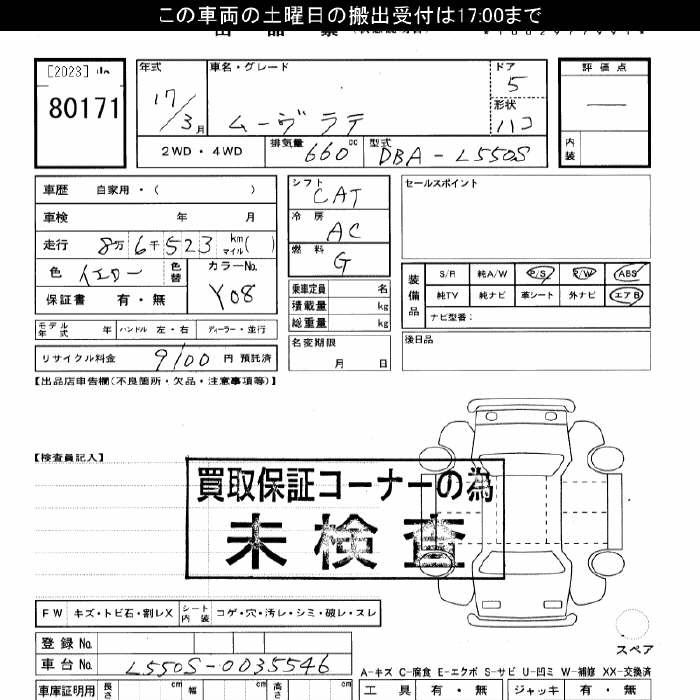 この車両の土曜日の搬出受付は17:00まで
[2023]
80171
年式
17/3月
車名・グレード
ムーヴ ラテ
ドア
5
形状
ハコ
評価点
内装
2WD・4WD
排気量 660cc
型式 DBA-L550S
車歴 自家用・( )
車検 年 月
走行 8万6千523 km マイル( )
色 イエロー 色替
カラーNo. Y08
保証書 有・無
モデル年式 年 ハンドル 左・右 ディーラー・並行
リサイクル料金 9100 円 預託済
シフト CAT
冷房 AC
燃料 G
乗車定員 名
積載量 kg
総重量 kg
名変期限
月 日
セールスポイント
装備品
S/R 純A/W P/S P/W ABS
純TV 純ナビ 革シート 外ナビ エアB
ナビ型番:
後日品
【出品店申告欄(不良箇所・欠品・注意事項等)】
【検査員記入】
買取保証コーナーの為
未検査
FW キズ・トビ石・割レX シート内装 コゲ・穴・汚レ・シミ・破レ・スレ
スペア
登録No.
車台No. L550S-0035546
A-キズ C-腐食 E-エクボ S-サビ U-凹ミ W-補修 XX-交換済
車庫証明用 長さ cm 幅 cm 高さ cm
工具 有・無 ジャッキ 有・無